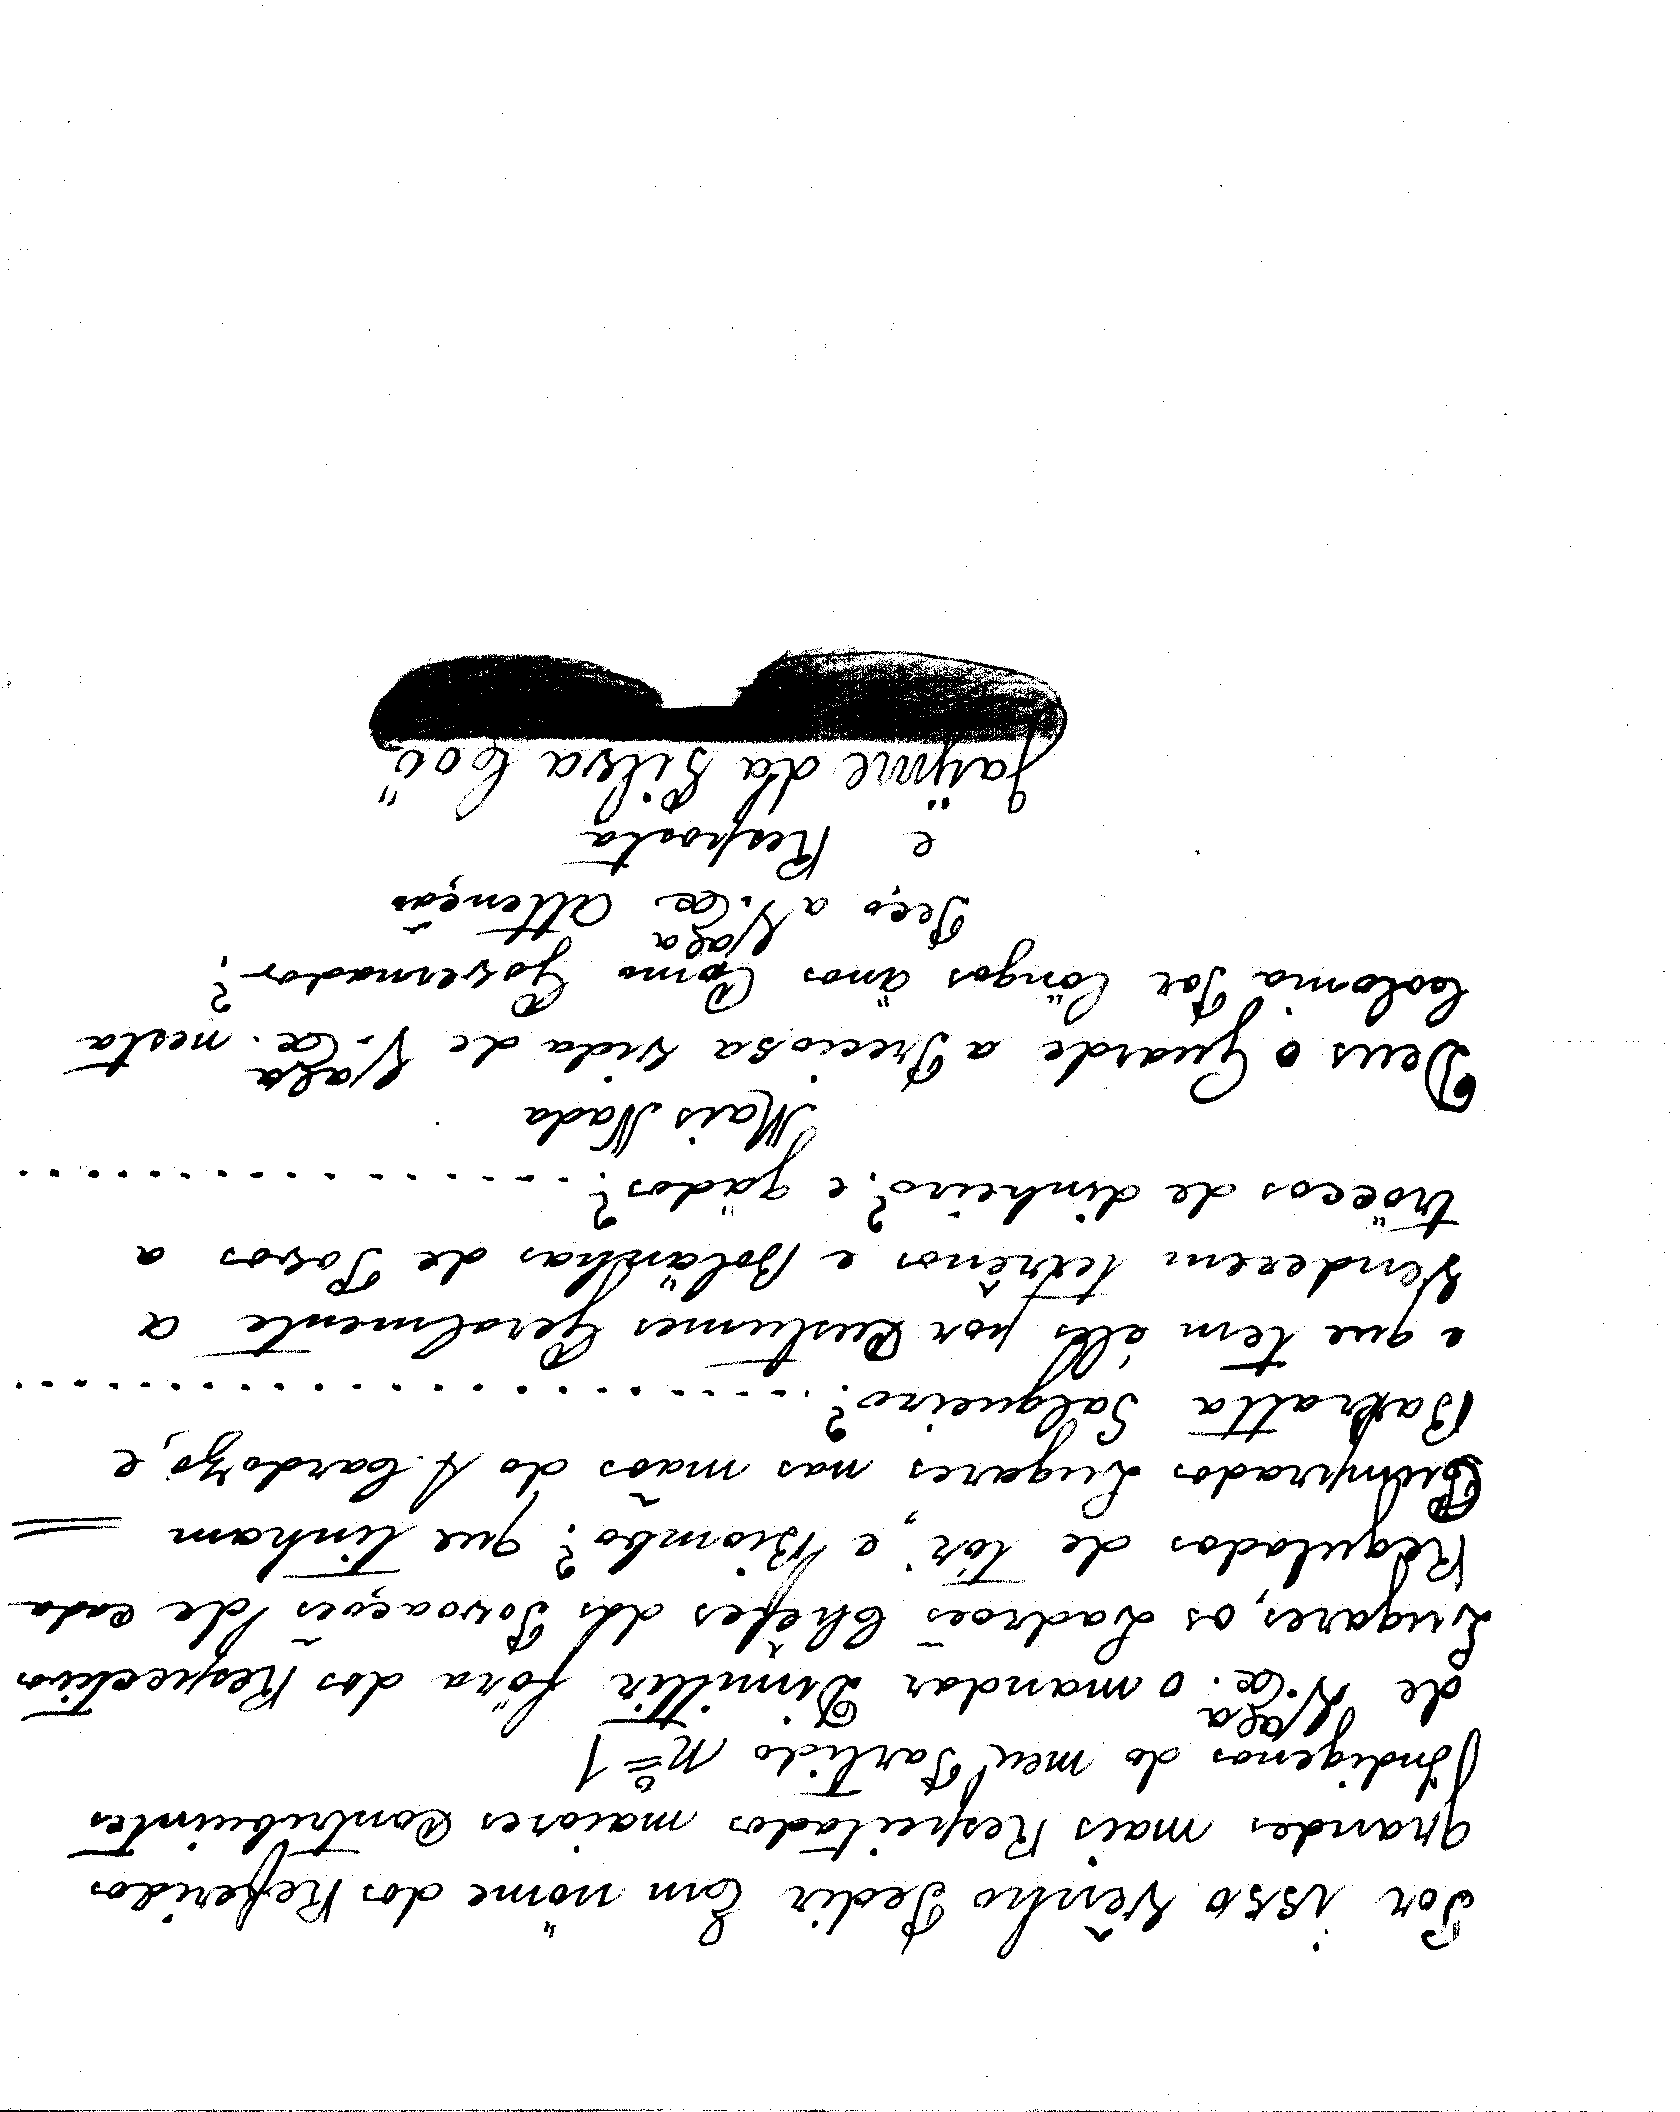 Por isso vênho Pedir Em nöme dos Referidos
grandes mais Respeitados maiores Contribuintes
Jndigenos do meu Partido nº=1
de V.Excia. o mandar Dimittir fóra dos Respectivos
Lugares, os Ladroẽs Chéfes das Povoaçoẽs de cada
Régulados de Tôr, e Biombo? que tinham =
Cumprados Lugares nas maõs do A. Cardozo, e
Barratta Salgueiro? ..................
e que tem élês por Custumes Geralmente a
Venderem terrênos e Bolänhas de Povos a
tröcos de dinheiro? e gädos? ..................
Mais Nada
Deus o Guarde a Preciosa vida de V.Excia. nesta
Colonia Por löngos änos Como Governador?
Peço a V.Excia Attenção
e Resposta
Jaÿme da Silva Coö